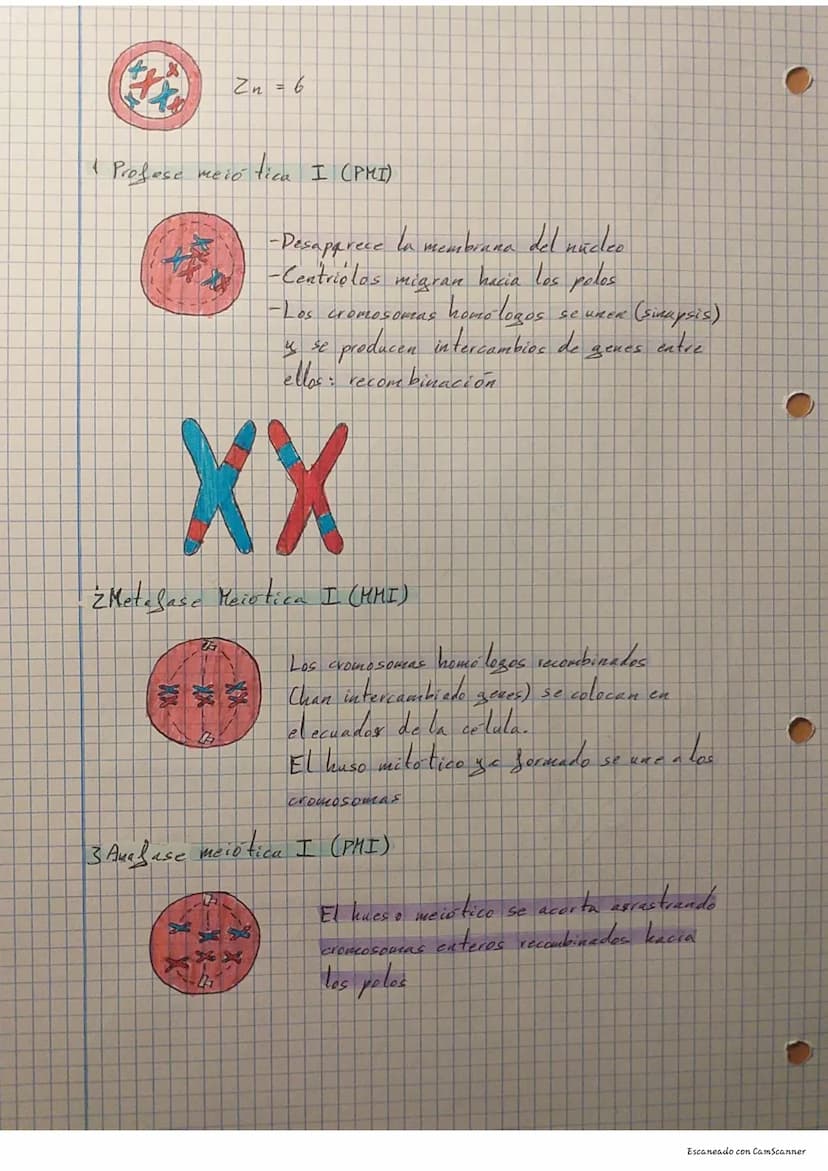 2n = 6
1 Profase meiótica I (PMI)
-Desaparece la membrana del núcleo
-Centriólos migran hacia los polos
-Los cromosomas homólogos se unen (sinapsis)
y se producen intercambios de genes entre
ellos: recombinación
2 Metafase Meiótica I (MMI)
Los cromosomas homólogos recombinados
(han intercambiado genes) se colocan en
el ecuador de la célula.
El huso mitótico ya formado se une a los
cromosomas
3 Anafase meiótica I (PMI)
El hueso meiótico se acorta arrastrando
cromosomas enteros recombinados hacia
los polos
Escaneado con CamScanner